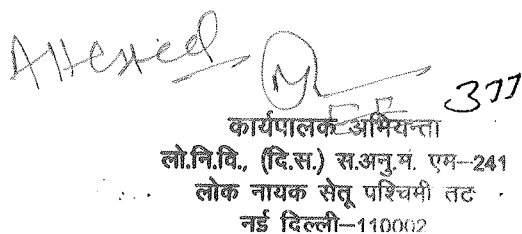 Attested
377
EE
कार्यपालक अभियन्ता
लो.नि.वि., (दि.स.) स.अनु.मं. एम-241
लोक नायक सेतू पश्चिमी तट
नई दिल्ली-110002